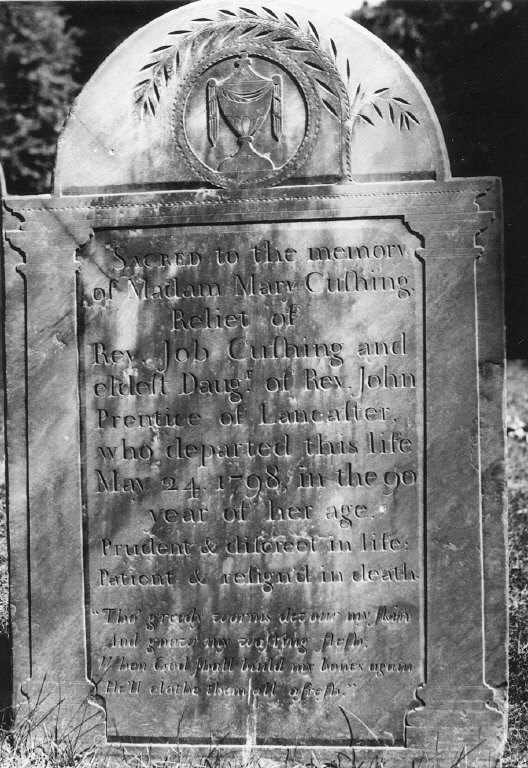 SACRED to the memory
of Madam Mary Cuſhing,
Relict of
Rev. Job Cuſhing and
eldeſt Daugr. of Rev. John
Prentice of Lancaſter,
who departed this life
May 24, 1798, in the 90
year of her age.
Prudent & diſcreet in life;
Patient & reſign'd in death.
"Tho' greedy worms devour my ſkin
And gnaw my waſting fleſh,
When God ſhall build my bones again
He'll clothe them all afreſh."